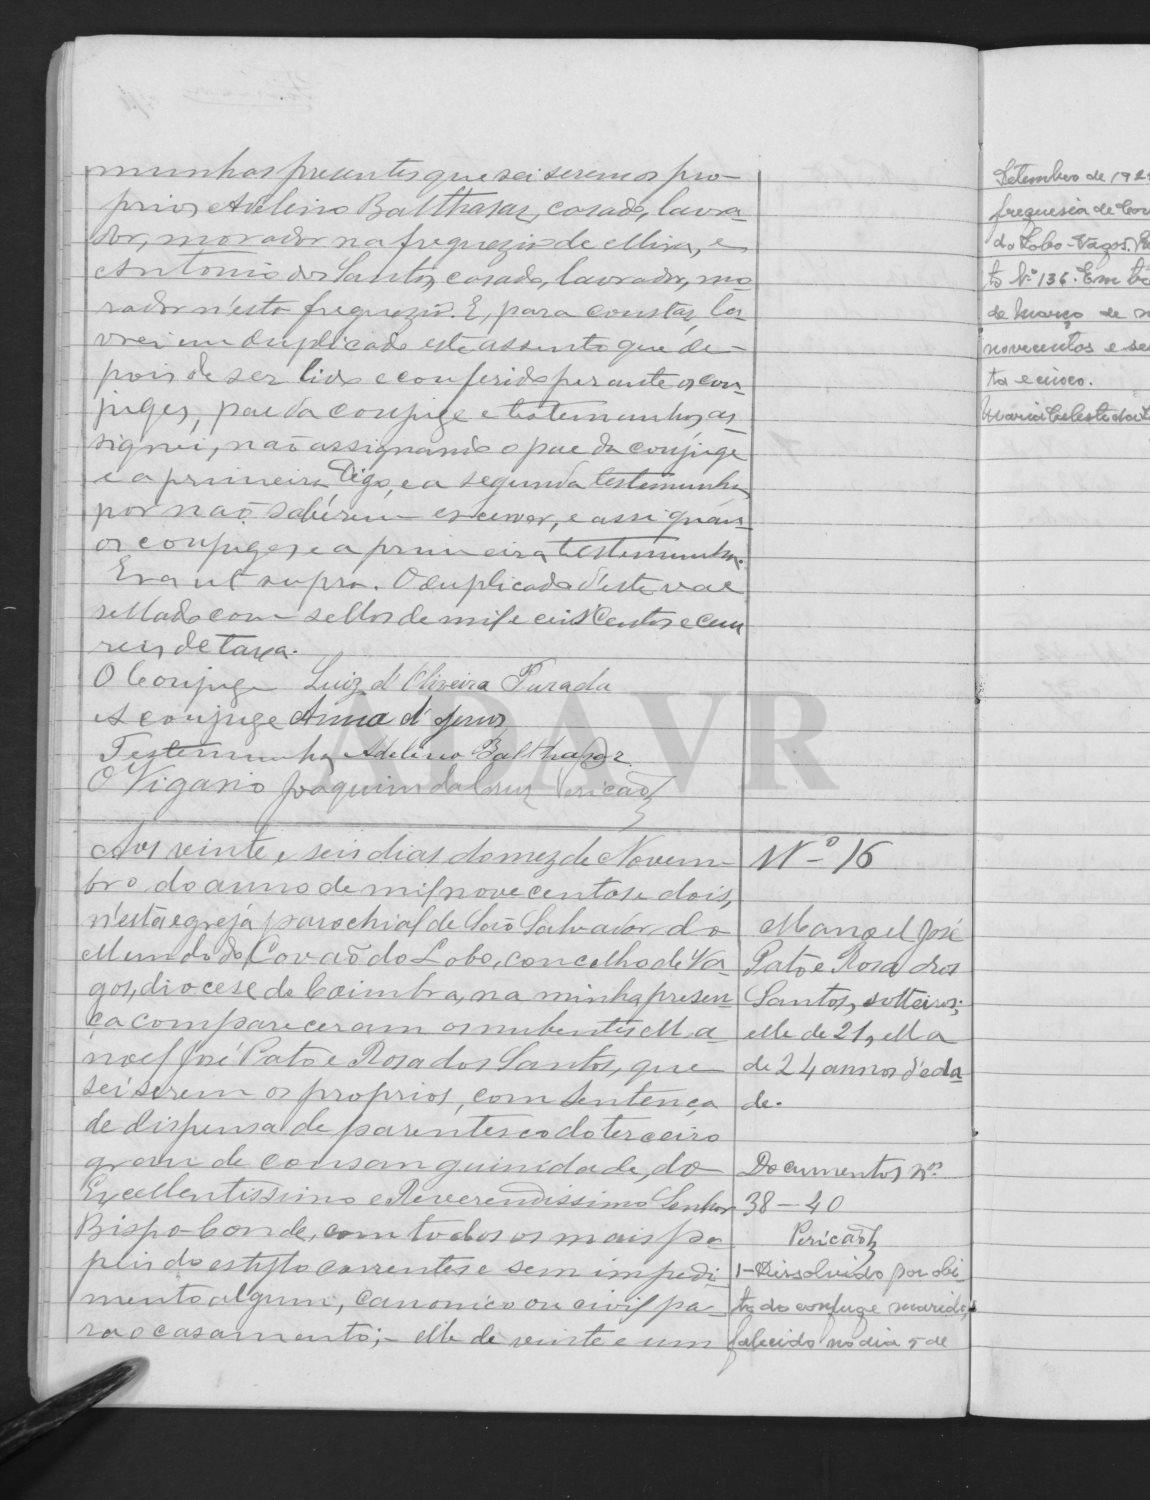 munhas presentes que sei serem os pro-
prios Adelino Balthasar, casado, lavra-
dor, morador na freguezia de Mira, e
Antonio dos Santos, casado, lavrador, mo-
rador n'esta freguezia. E, para constar, la-
vrei em duplicado este assento que de-
pois de ser lido e conferido perante os con-
juges, pae da conjuge e testemunhas, as-
signei, não assignando o pae da conjuge
e a primeira digo, e a segunda testemunha
por não saberem escrever, e assignam
os conjuges e a primeira testemunha.
Era ut supra. O duplicado d'este vae
sellado com sellos de mil e
reis de taxa.
O Conjuge Luiz d'Oliveira Parada
A conjuge Anna d' Jesus
Testemunha Adelino Balthasar
O Vigario Joaquim da Cruz Pericão
Aos vinte e seis dias do mez de Novem-
bro do anno de mil nove centos e dois,
n'esta egreja parochial de São Salvador do
Mundo do Covão do Lobo, concelho de Va-
gos, diocese de Coimbra, na minha presen-
ça compareceram os nubentes Ma-
noel José Pato e Rosa dos Santos, que
sei serem os proprios, com sentença
de dispensa de parentesco do terceiro
grau de consanguinidade, do
Excellentissimo e Reverendissimo Senhor
Bispo-Conde, com todos os mais pa-
peis do estylo correntes e sem impedi-
mento algum, canonico ou civil pa-
ra o casamento; - elle de vinte e um
Nº 16
Manoel José
Pato e Rosa dos
Santos, solteiros;
elle de 21, ella
de 24 annos d'eda-
de.
Documentos nos
38-40
Pericão
1-Dissolvido por obi-
to do conjuge marido,
falecido no dia 5 de
Setembro de 192
freguesia de Cov
do Lobo-Vagos.
to Nº 136. Em
de Março de
novecentos e se
ta e cinco.
Maria Celeste
ADAVR